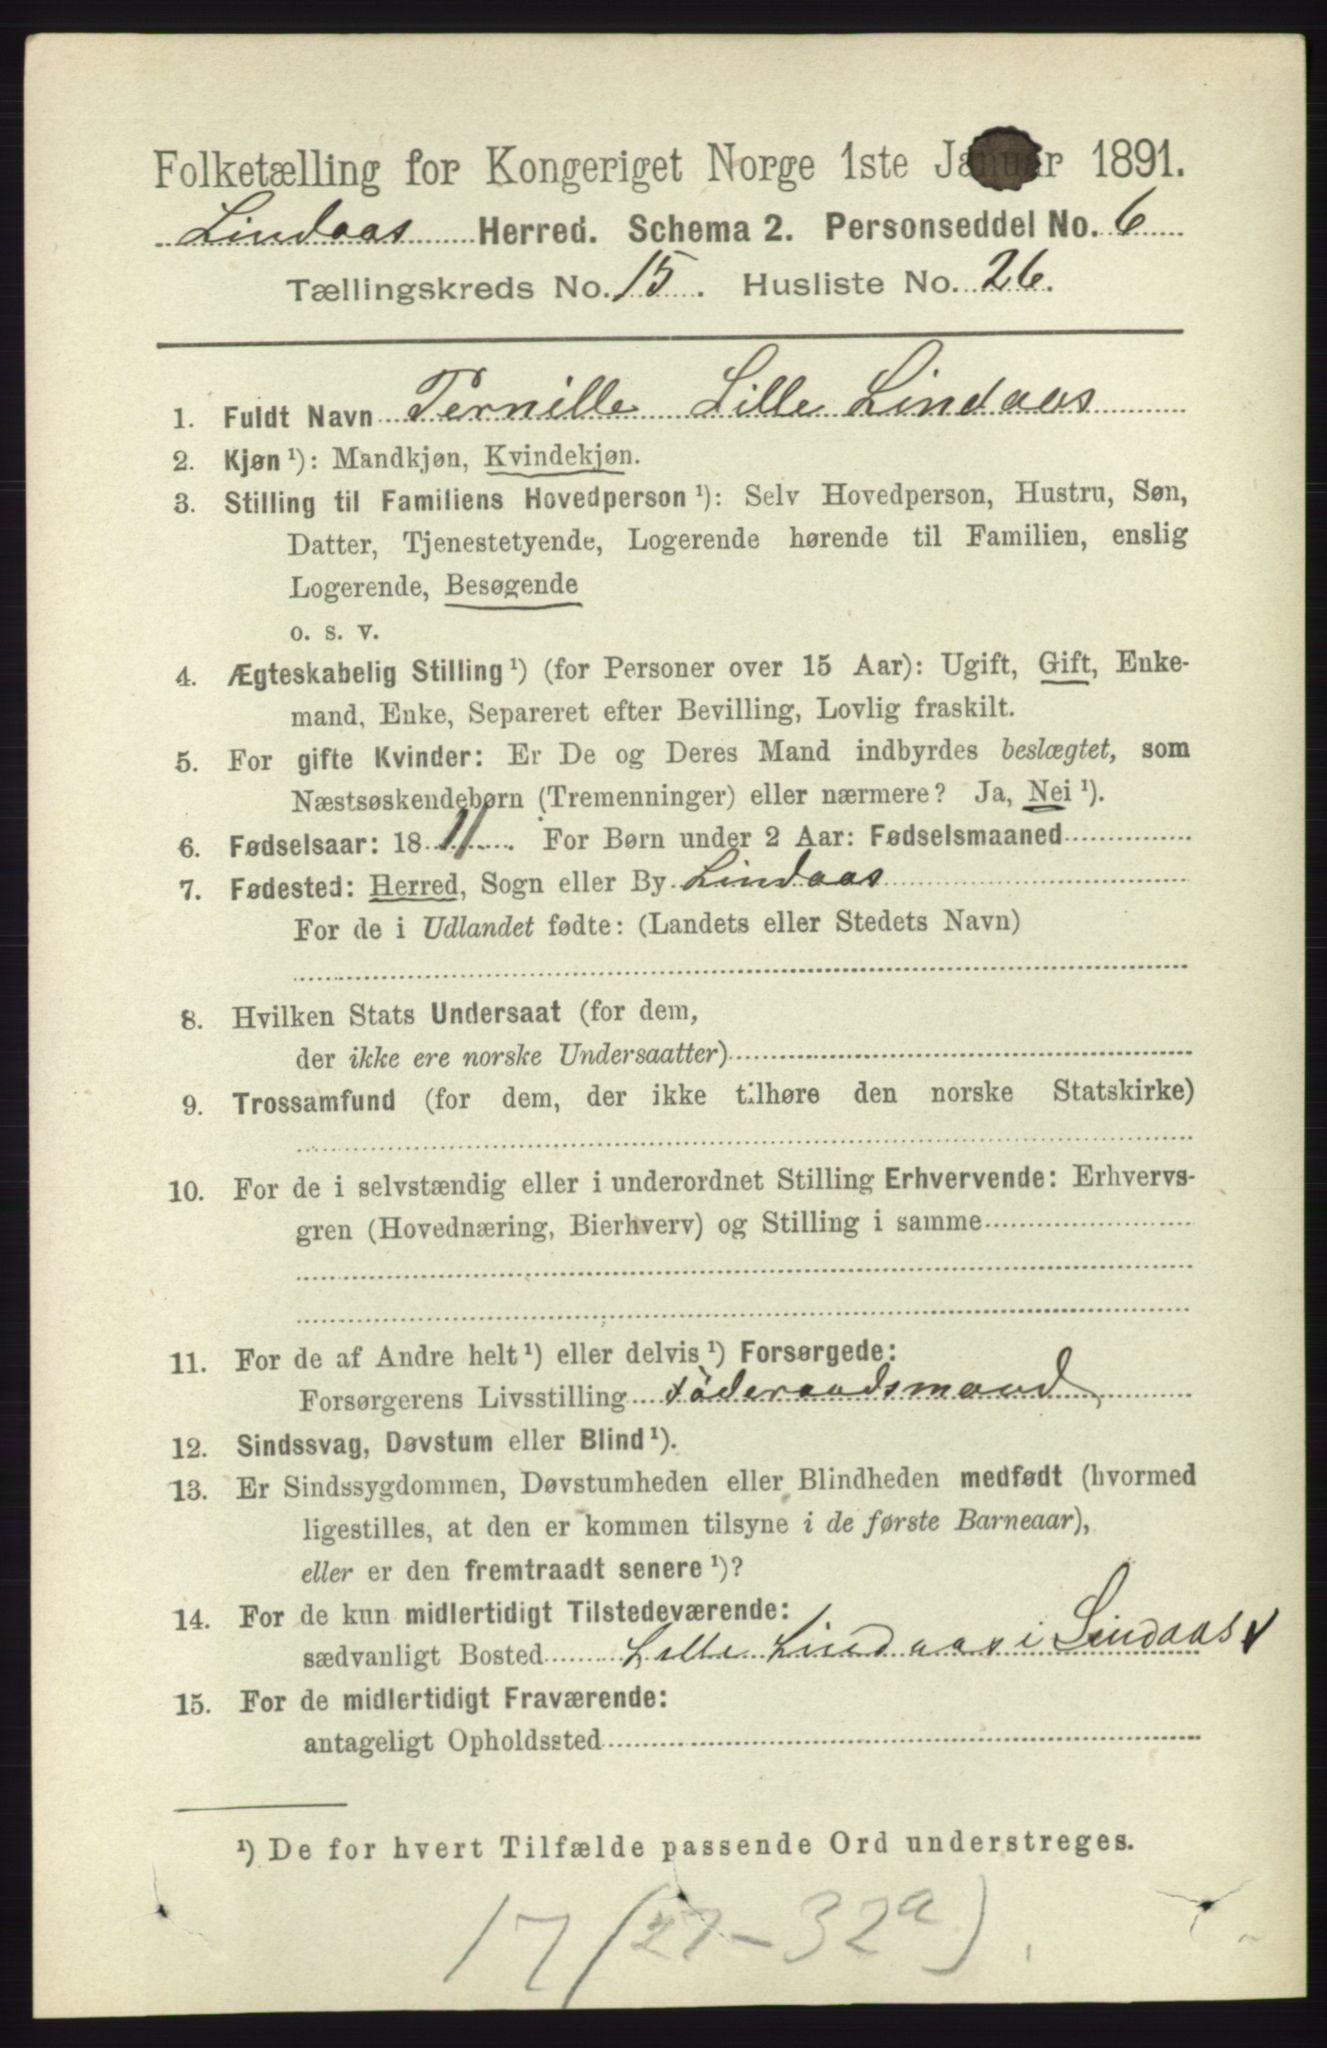 Folketælling for Kongeriget Norge 1ste Januar 1891.
Lindaas Herred. Schema 2. Personseddel No. 6
Tællingskreds No. 15. Husliste No. 26.
1. Fuldt Navn Pernille Lille Lindaas
2. Kjøn ¹): Mandkjøn, Kvindekjøn.
3. Stilling til Familiens Hovedperson ¹): Selv Hovedperson, Hustru, Søn,
Datter, Tjenestetyende, Logerende hørende til Familien, enslig
Logerende, Besøgende
o. s. v.
4. Ægteskabelig Stilling ¹) (for Personer over 15 Aar): Ugift, Gift, Enke-
mand, Enke, Separeret efter Bevilling, Lovlig fraskilt.
5. For gifte Kvinder: Er De og Deres Mand indbyrdes beslægtet, som
Næstsøskendebørn (Tremenninger) eller nærmere? Ja, Nei ¹).
6. Fødselsaar: 18 11. For Børn under 2 Aar: Fødselsmaaned
7. Fødested: Herred, Sogn eller By Lindaas
For de i Udlandet fødte: (Landets eller Stedets Navn)
8. Hvilken Stats Undersaat (for dem,
der ikke ere norske Undersaatter)
9. Trossamfund (for dem, der ikke tilhøre den norske Statskirke)
10. For de i selvstændig eller i underordnet Stilling Erhvervende: Erhvervs-
gren (Hovednæring, Bierhverv) og Stilling i samme
11. For de af Andre helt ¹) eller delvis ¹) Forsørgede:
Forsørgerens Livsstilling Föderaadsmand
12. Sindssvag, Døvstum eller Blind ¹).
13. Er Sindssygdommen, Døvstumheden eller Blindheden medfødt (hvormed
ligestilles, at den er kommen tilsyne i de første Barneaar),
eller er den fremtraadt senere ¹)?
14. For de kun midlertidigt Tilstedeværende:
sædvanligt Bosted Lille Lindaas i Lindaas
15. For de midlertidigt Fraværende:
antageligt Opholdssted
¹) De for hvert Tilfælde passende Ord understreges.
17 (27-32a).